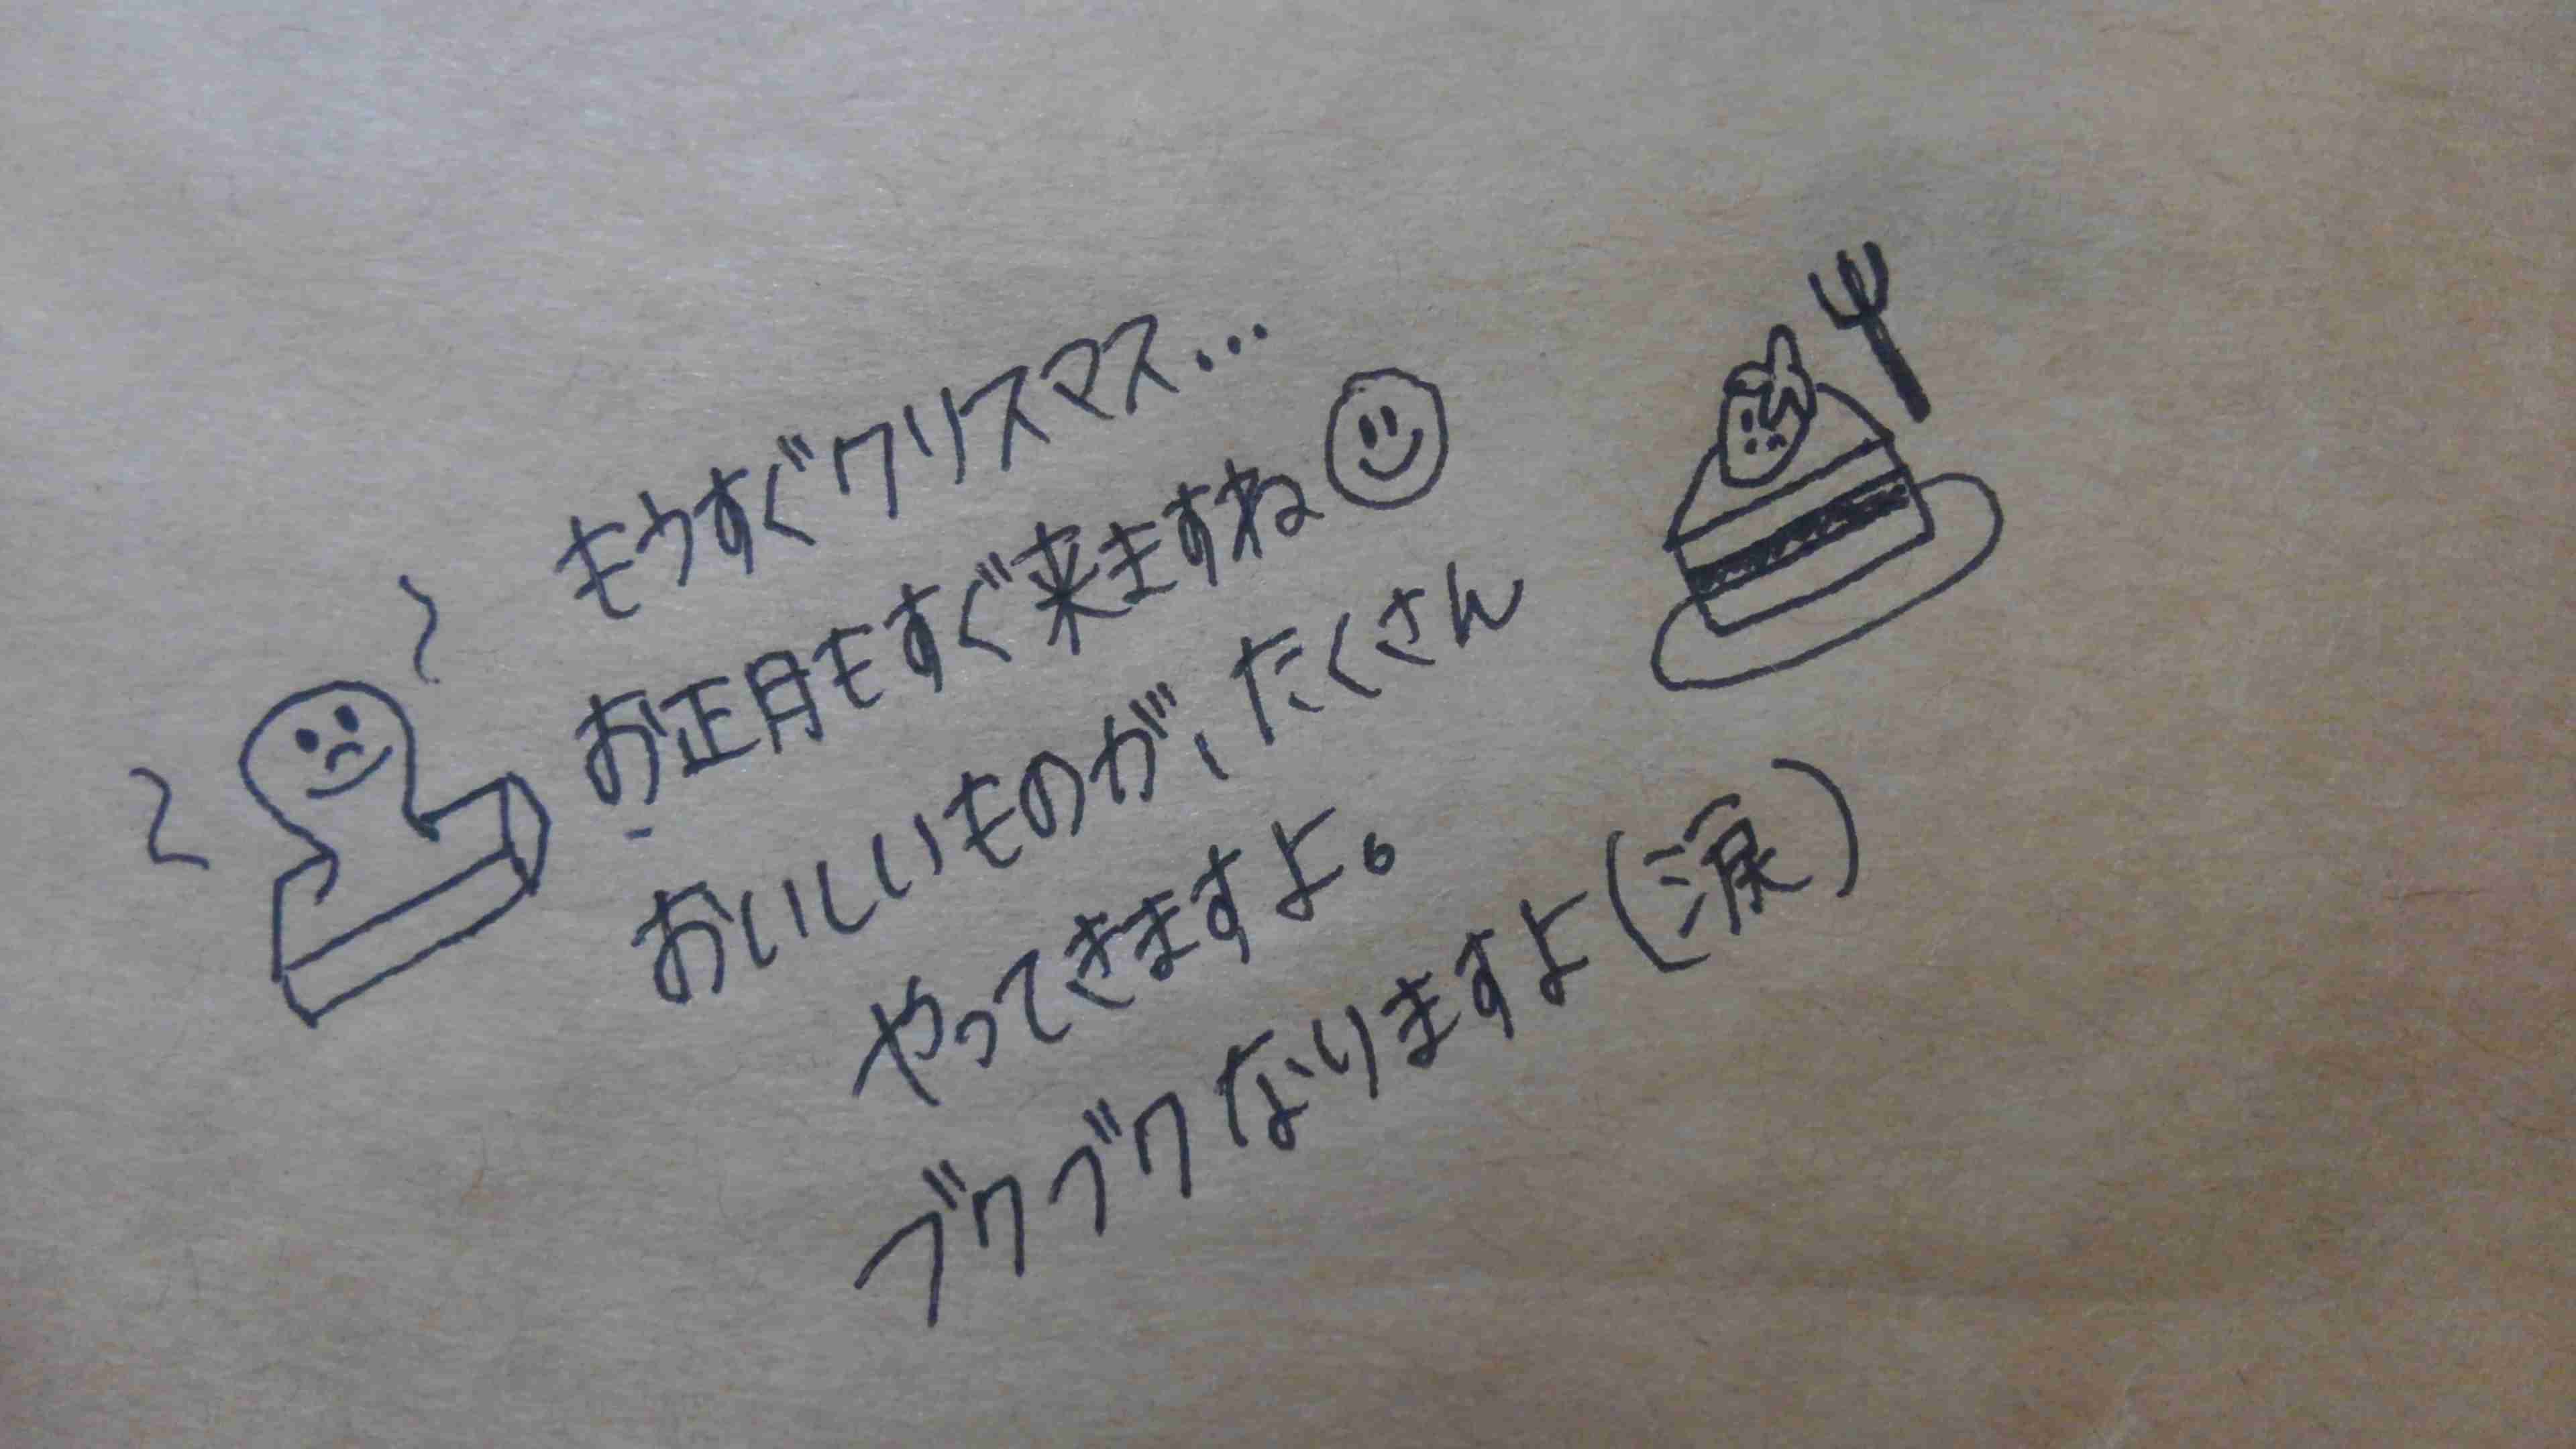 もうすぐクリスマス…
お正月もすぐ来ますね
おいしいものが、たくさん
やってきますよ。
ブクブクなりますよ(涙)